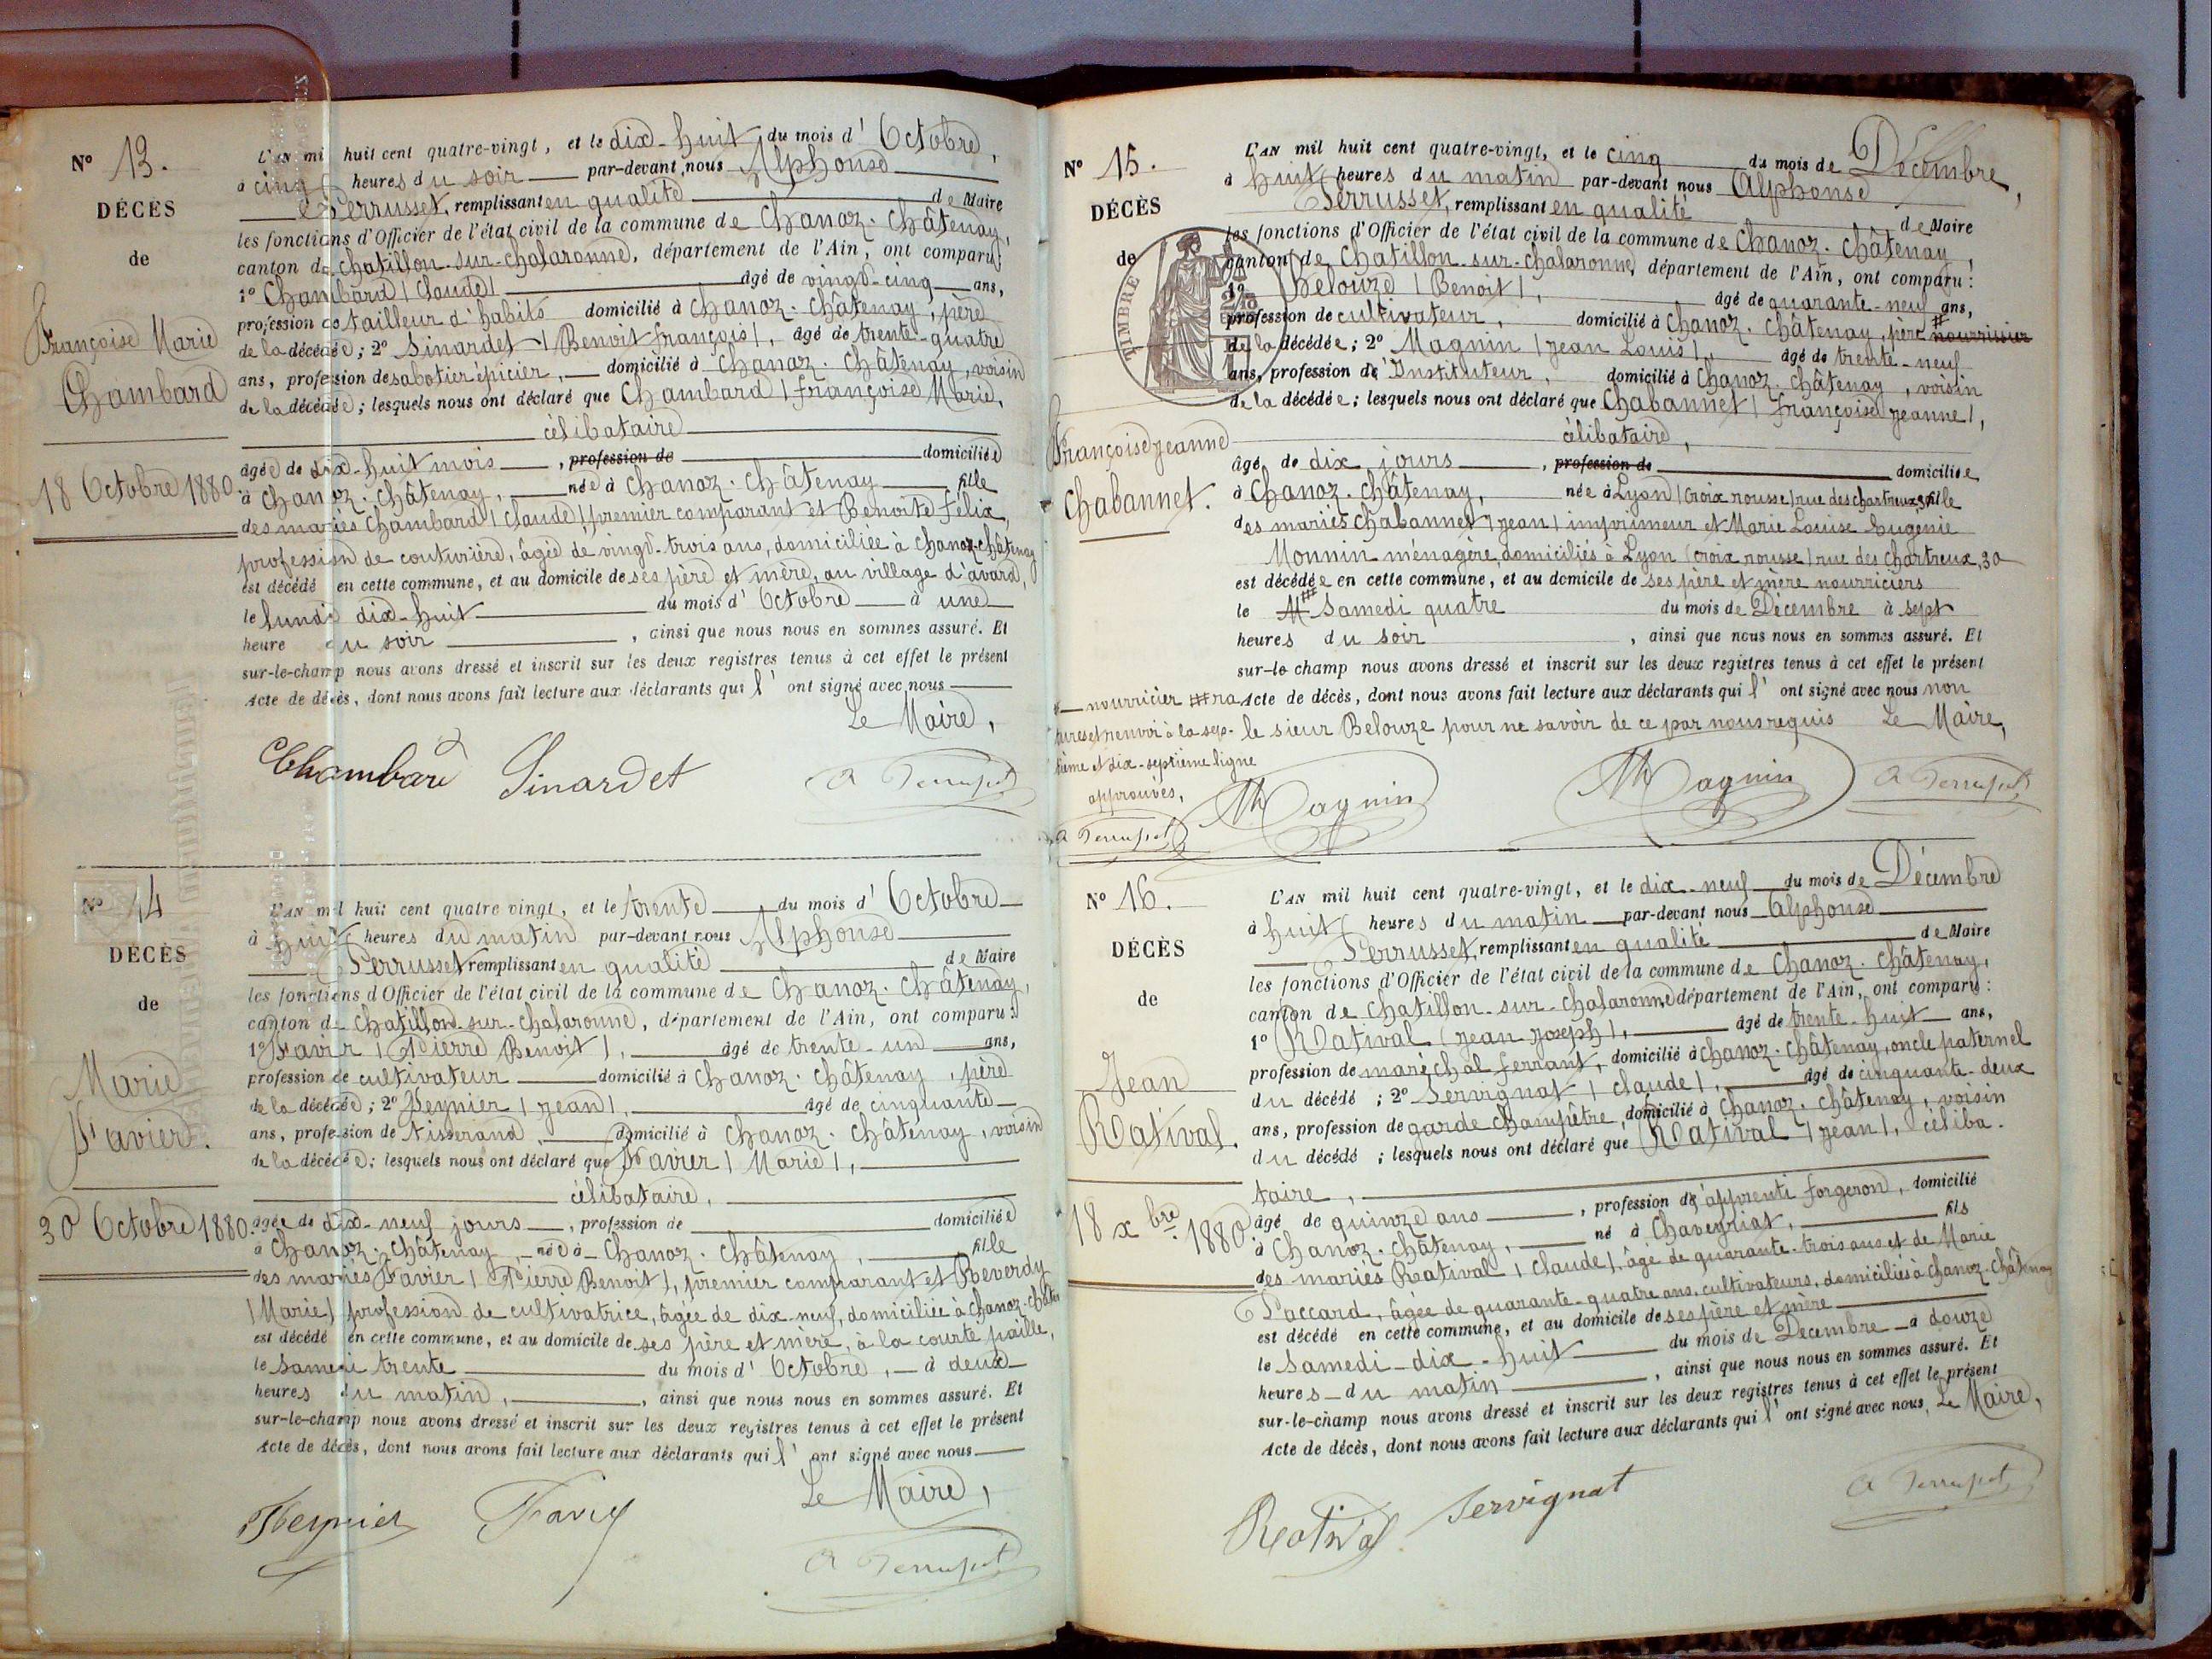 N° 13.
DÉCÈS
de
Françoise Marie
Chambard
18 Octobre 1880.
L'AN mil huit cent quatre-vingt, et le dix-huit du mois d' Octobre,
à cinq heures du soir par-devant nous Alphonse
Perrusset, remplissant en qualité de Maire
les fonctions d'Officier de l'état civil de la commune de Chanoz-Châtenay,
canton de Chatillon-sur-Chalaronne, département de l'Ain, ont comparu:
1° Chambard (Claude) âgé de vingt-cinq ans,
profession de tailleur d'habits domicilié à Chanoz-Châtenay, père
de la décédée; 2° Sinardet (Benoit François), âgé de trente-quatre
ans, profession de sabotier épicier, domicilié à Chanoz-Châtenay, voisin
de la décédée; lesquels nous ont déclaré que Chambard (Françoise Marie,
célibataire
âgée de dix-huit mois, profession de domiciliée
à Chanoz-Châtenay, née à Chanoz-Châtenay fille
des mariés Chambard (Claude) premier comparant et Benoite Félix,
profession de couturière, âgée de vingt-trois ans, domiciliée à Chanoz-Châtenay
est décédé en cette commune, et au domicile de ses père et mère, au village d'avard,
le lundi dix-huit du mois d' Octobre à une
heure du soir, ainsi que nous nous en sommes assuré. Et
sur-le-champ nous avons dressé et inscrit sur les deux registres tenus à cet effet le présent
Acte de décès, dont nous avons fait lecture aux déclarants qui l' ont signé avec nous
Le Maire,
Chambard Sinardet A Perrusset
N° 14
DÉCÈS
de
Marie
Favier.
30 Octobre 1880.
L'AN mil huit cent quatre vingt, et le trente du mois d' Octobre
à huit heures du matin par-devant nous Alphonse
Perrusset remplissant en qualité de Maire
les fonctions d'Officier de l'état civil de la commune de Chanoz-Châtenay,
canton de Chatillon-sur-Chalaronne, département de l'Ain, ont comparu:
1° Favier (Pierre Benoit), âgé de trente-un ans,
profession de cultivateur domicilié à Chanoz-Châtenay, père
de la décédée; 2° Peynier (Jean), âgé de cinquante
ans, profession de tisserand, domicilié à Chanoz-Châtenay, voisin
de la décédée; lesquels nous ont déclaré que Favier (Marie),
célibataire,
âgée de dix-neuf jours, profession de domiciliée
à Chanoz-Châtenay, née à Chanoz-Châtenay, fille
des mariés Favier (Pierre Benoit), premier comparant et Reverdy
(Marie) profession de cultivatrice, âgée de dix-neuf, domiciliée à Chanoz-Châte
est décédé en cette commune, et au domicile de ses père et mère, à la courte paille,
le samedi trente du mois d' Octobre, à deux
heures du matin, ainsi que nous nous en sommes assuré. Et
sur-le-champ nous avons dressé et inscrit sur les deux registres tenus à cet effet le présent
Acte de décès, dont nous avons fait lecture aux déclarants qui l' ont signé avec nous
Le Maire,
Peynier Favier
A Perrusset
N° 15.
DÉCÈS
de
TIMBRE
Françoise Jeanne
Chabannet.
L'AN mil huit cent quatre-vingt, et le cinq du mois de Décembre,
à huit heures du matin par-devant nous Alphonse
Perrusset, remplissant en qualité de Maire
les fonctions d'Officier de l'état civil de la commune de Chanoz-Châtenay,
canton de Chatillon-sur-Chalaronne, département de l'Ain, ont comparu:
1° Belouze (Benoit), âgé de quarante-neuf ans,
profession de cultivateur, domicilié à Chanoz-Châtenay, père # nourrissier
de la décédée; 2° Magnin (Jean Louis), âgé de trente-neuf
ans, profession d' Instituteur, domicilié à Chanoz-Châtenay, voisin
de la décédée; lesquels nous ont déclaré que Chabannet (Françoise Jeanne),
célibataire,
âgé de dix jours, profession de domiciliée
à Chanoz-Châtenay, née à Lyon (croix rousse) rue des Chartreux, fille
des mariés Chabannet (Jean) imprimeur et Marie Louise Eugénie
Monnin ménagère, domiciliés à Lyon (croix rousse) rue des Chartreux, 30
est décédée en cette commune, et au domicile de ses père et mère nourriciers
le M ## samedi quatre du mois de Décembre à sept
heures du soir, ainsi que nous nous en sommes assuré. Et
sur-le champ nous avons dressé et inscrit sur les deux registres tenus à cet effet le présent
Acte de décès, dont nous avons fait lecture aux déclarants qui l' ont signé avec nous non
le sieur Belouze pour ne savoir de ce par nous requis Le Maire,
# nourricier ## ra
tures et renvoi à la sep-
tième et dix-septième ligne
approuvés,
A Perrusset Magnin Magnin A Perrusset
N° 16.
DÉCÈS
de
Jean
Rativat.
18 xbre 1880.
L'AN mil huit cent quatre-vingt, et le dix-neuf du mois de Décembre
à huit heures du matin par-devant nous Alphonse
Perrusset, remplissant en qualité de Maire
les fonctions d'Officier de l'état civil de la commune de Chanoz-Châtenay,
canton de Chatillon-sur-Chalaronne, département de l'Ain, ont comparu:
1° Rativat (Jean Joseph), âgé de trente-huit ans,
profession de maréchal ferrant, domicilié à Chanoz-Châtenay, oncle paternel
du décédé; 2° Servignat (Claude), âgé de cinquante-deux
ans, profession de garde champêtre, domicilié à Chanoz-Châtenay, voisin
du décédé; lesquels nous ont déclaré que Rativat (Jean), céliba-
taire,
âgé de quinze ans, profession d'apprenti forgeron, domicilié
à Chanoz-Châtenay, né à Chaveyriat, fils
des mariés Rativat (Claude), âgé de quarante-trois ans et de Marie
Paccard, âgée de quarante-quatre ans, cultivateurs, domiciliés à Chanoz-Châtenay
est décédé en cette commune, et au domicile de ses père et mère
le samedi dix-huit du mois de Décembre à douze
heures du matin, ainsi que nous nous en sommes assuré. Et
sur-le-champ nous avons dressé et inscrit sur les deux registres tenus à cet effet le présent
Acte de décès, dont nous avons fait lecture aux déclarants qui l' ont signé avec nous, Le Maire,
Rativat Servignat A Perrusset